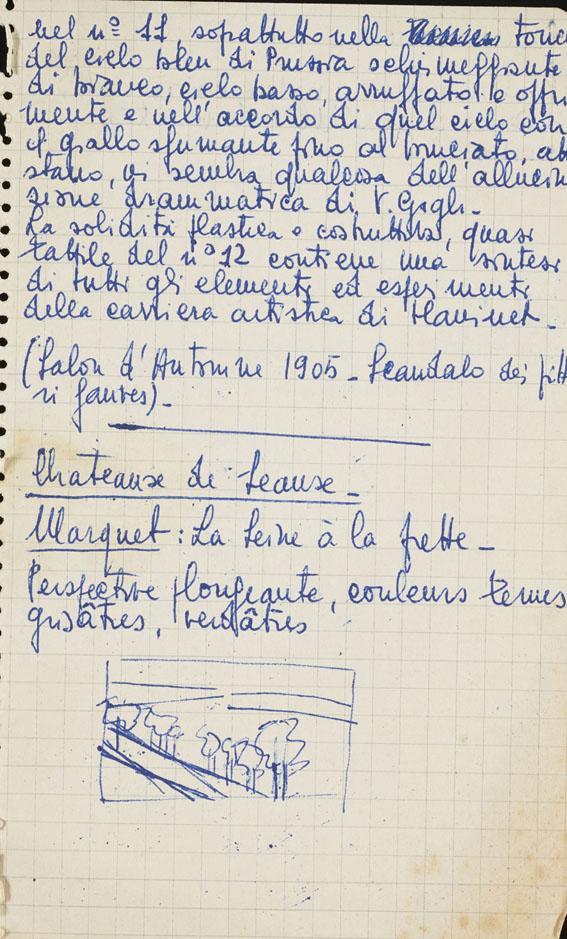 nel nº 11, soprattutto nella
del cielo bleu di Prussia scheggiante
di bianco, cielo basso, arruffato e
mente e nell'accordo di quel cielo con
il giallo sfumante fino al bruciato,
stano, vi sembra qualcosa dell'allucin
sione drammatica di V. Gogh.
La solidità plastica e costruttiva, quasi
tattile del nº 12 contiene una sintesi
di tutti gli elementi ed esperimenti
della carriera artistica di
(Salon d'Automne 1905 - Scandalo dei pitt
ri fauves).-
Chateaux de Sceaux -
Marquet : La Seine à la frette -
Perspective plongeante, couleurs ternes
grisâtres, verdâtres